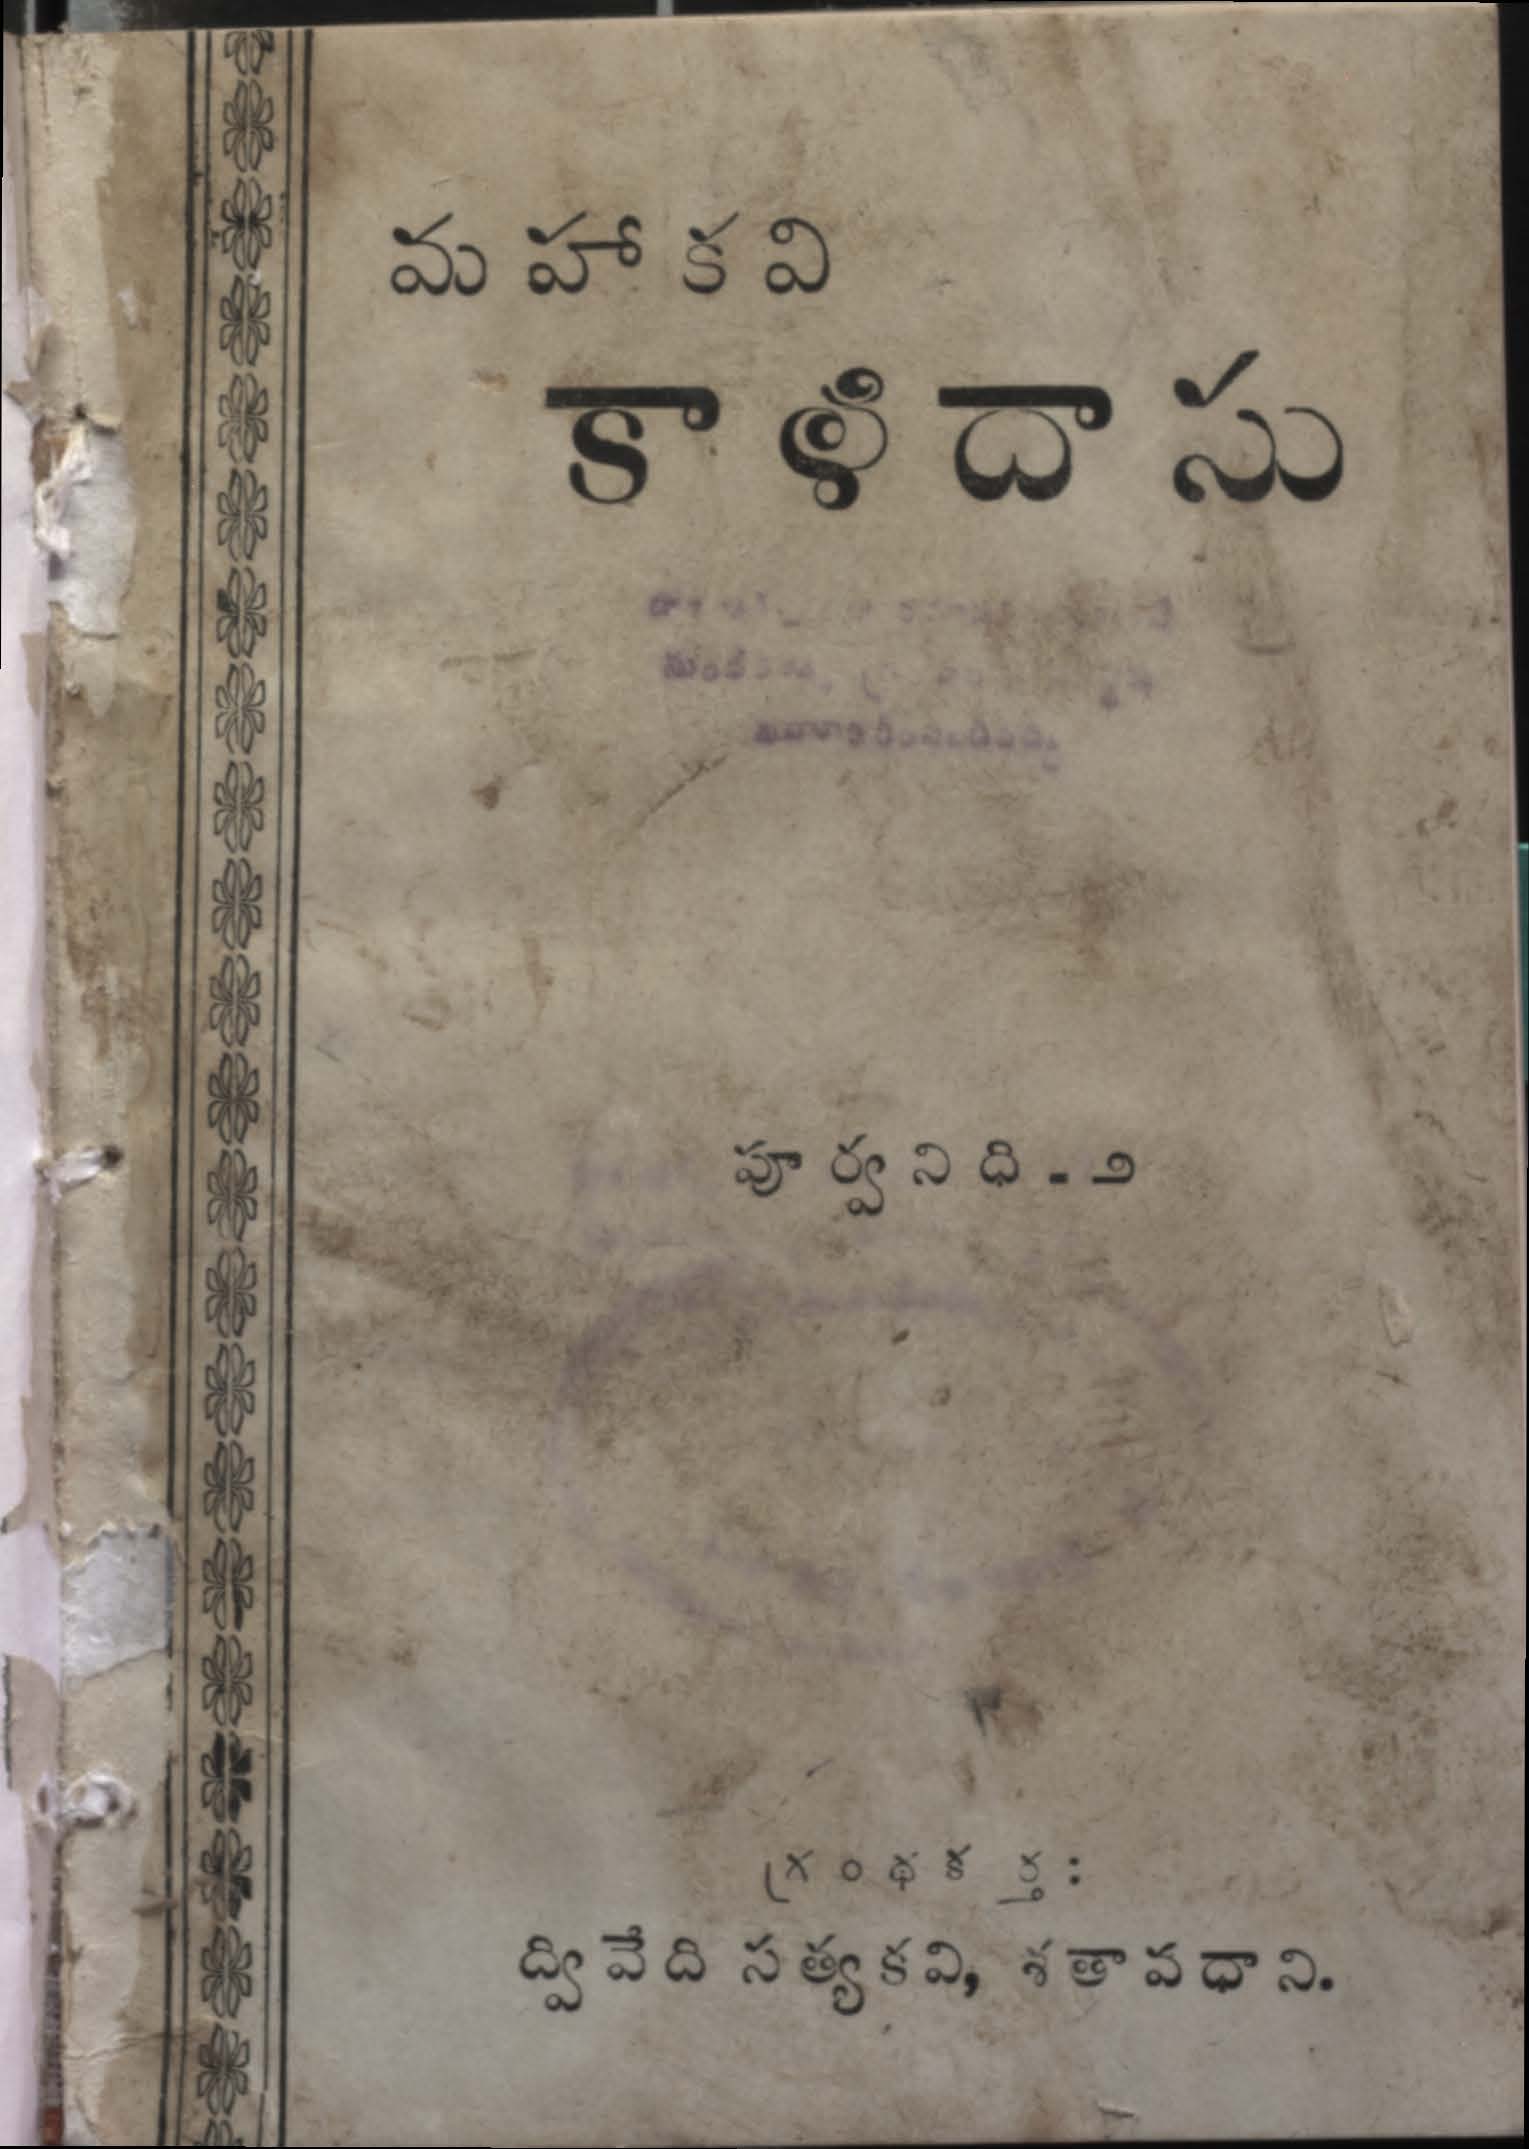 మహాకవి
కాళిదాసు
పూర్వనిధి - ౨
గ్రంథకర్త :
ద్వివేది సత్యకవి, శతావధాని.